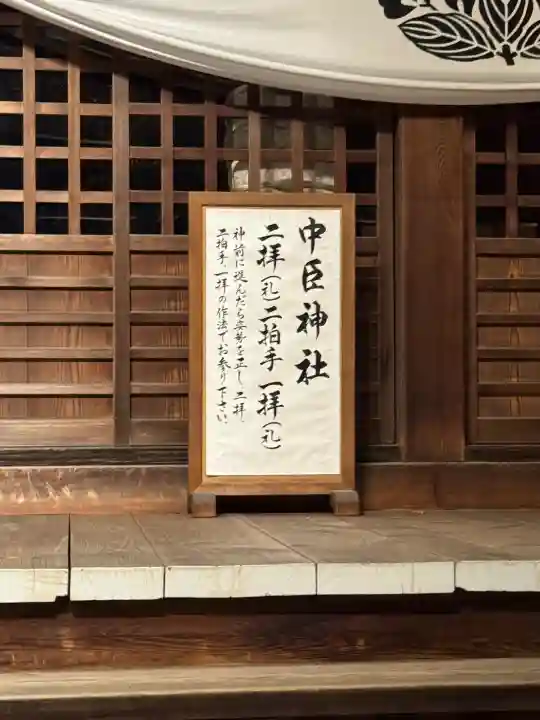 中臣神社
二拝(礼)二拍手一拝(礼)
神前に進んだら姿勢を正し、二拝、
二拍手、一拝の作法でお参り下さい。